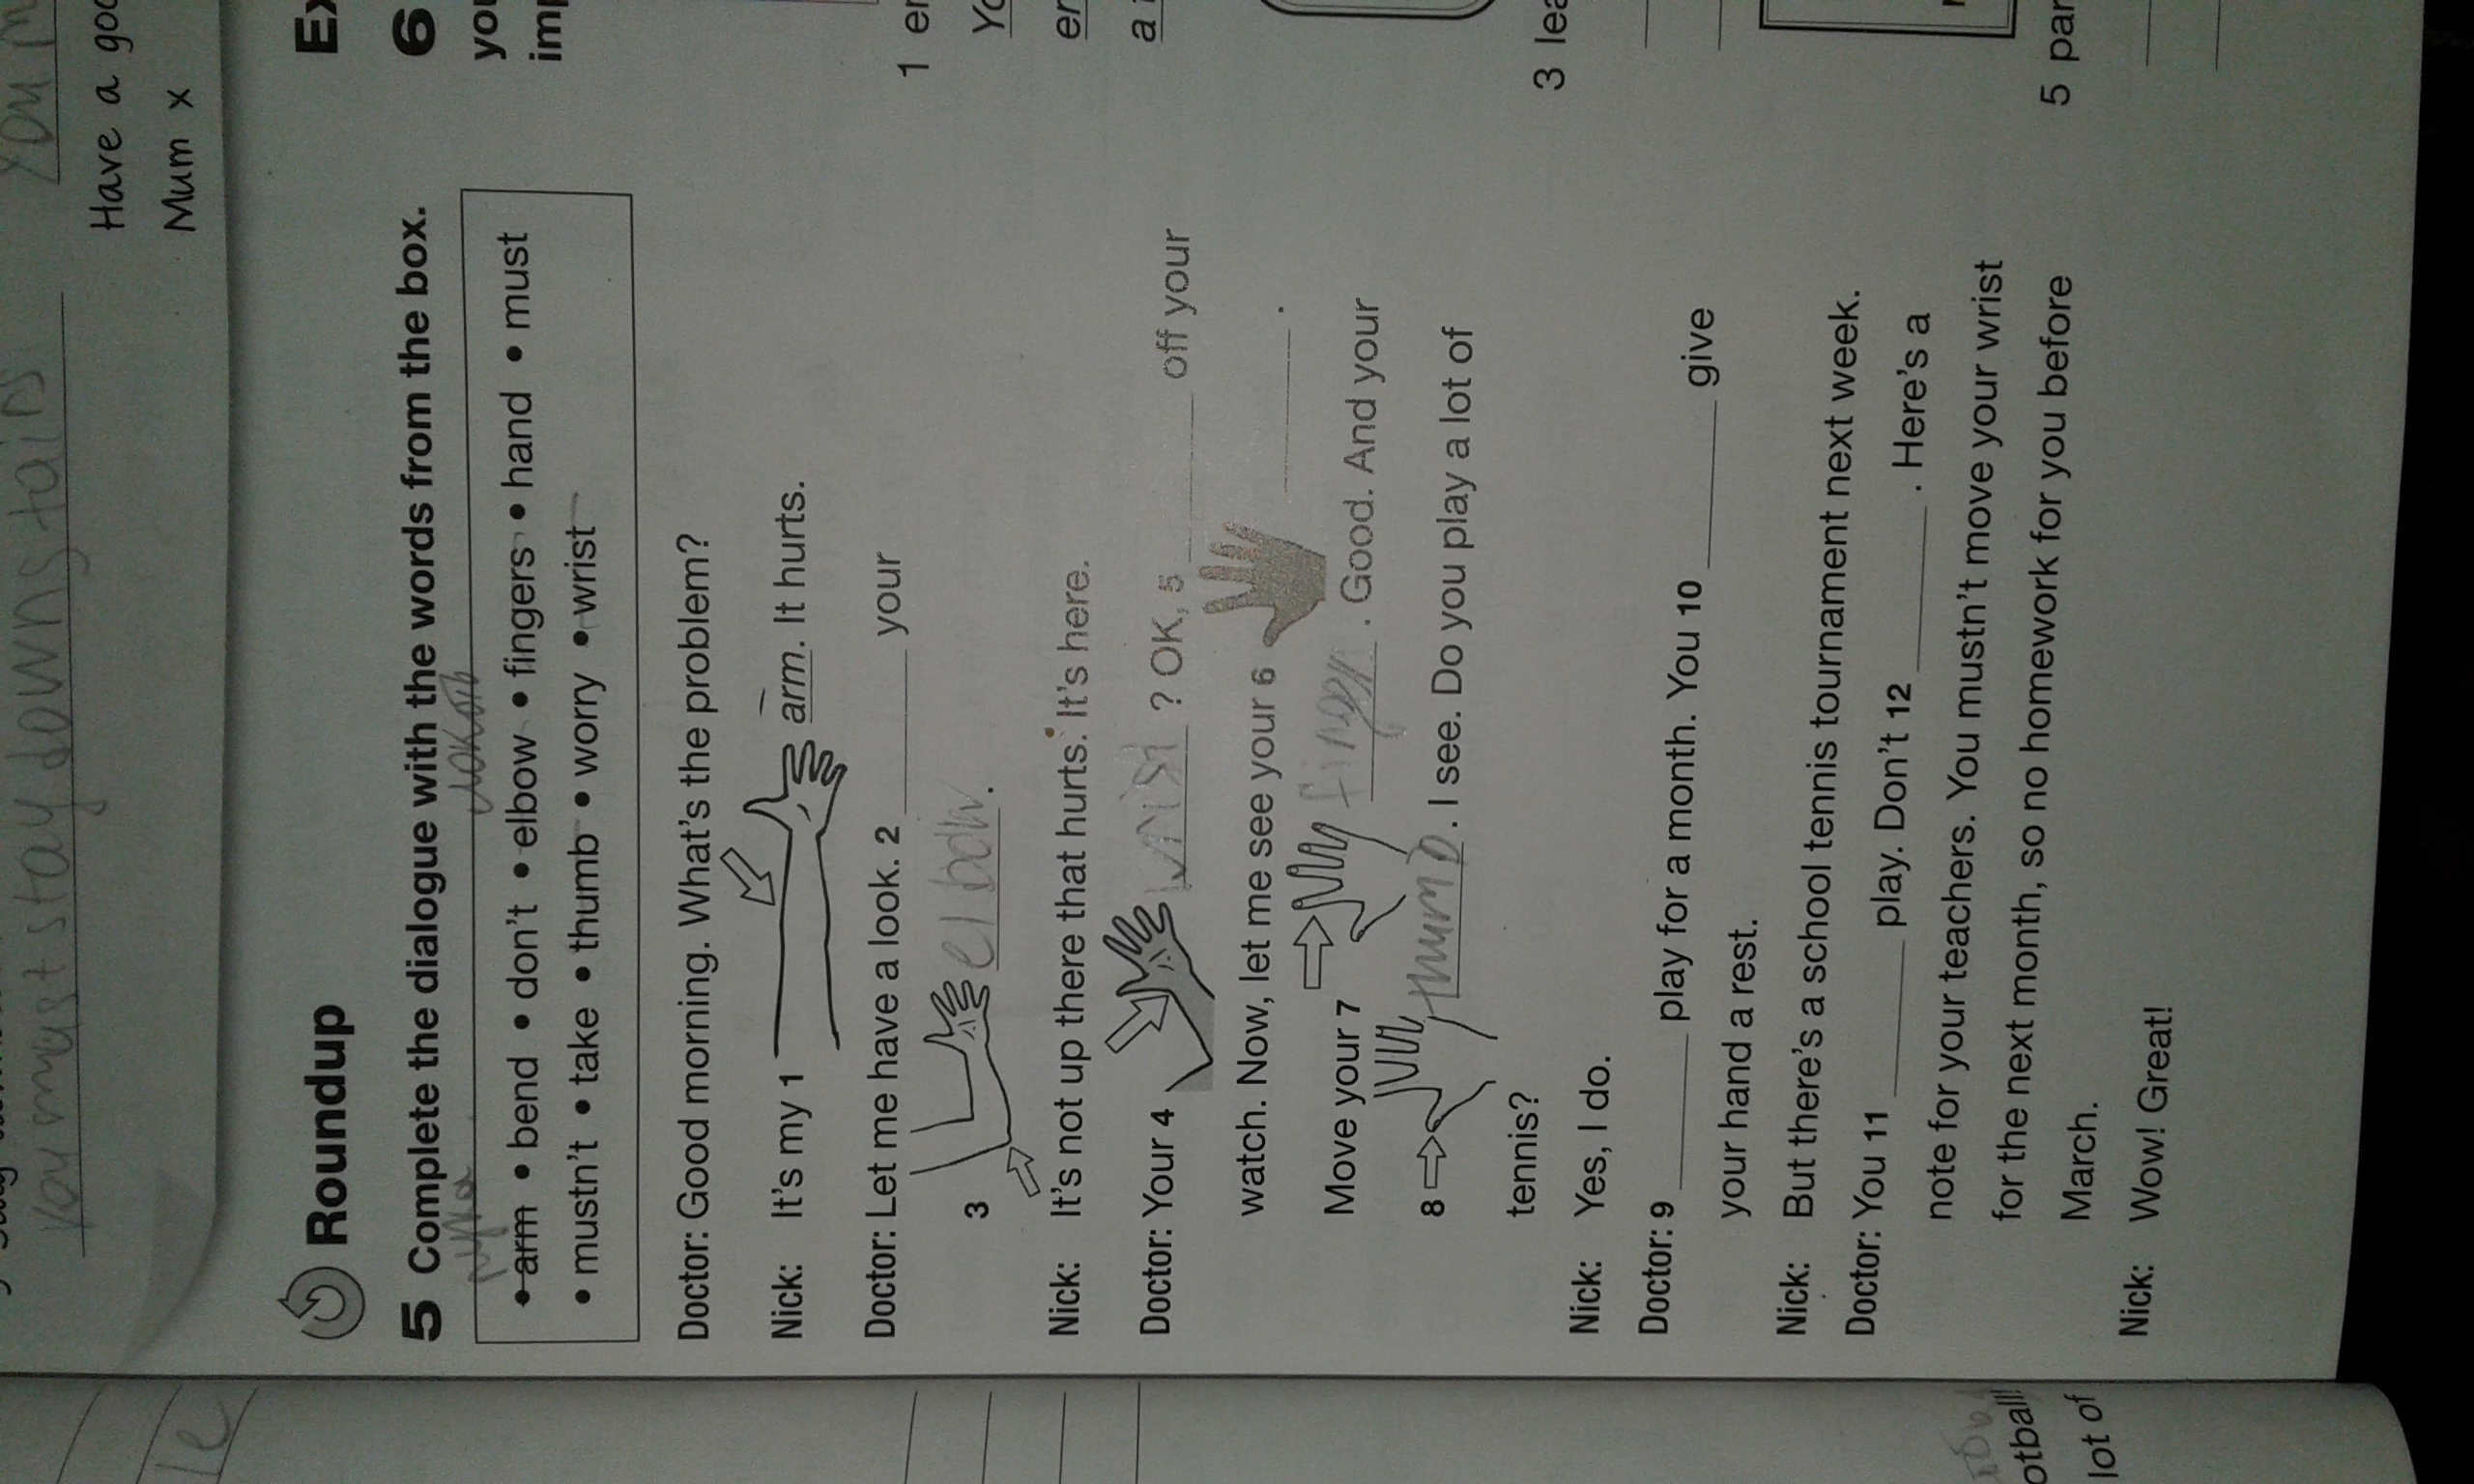 You must stay downstairs
You m
Have a goo
Mum x
Roundup
5 Complete the dialogue with the words from the box.
• arm • bend • don't • elbow • fingers • hand • must
• mustn't • take • thumb • worry • wrist
Doctor: Good morning. What's the problem?
Nick: It's my 1 arm. It hurts.
Doctor: Let me have a look. 2 ________ your
3 elbow.
Nick: It's not up there that hurts. It's here.
Doctor: Your 4 wrist ? OK, 5 ________ off your
watch. Now, let me see your 6 ________ .
Move your 7 finger . Good. And your
8 thumb . I see. Do you play a lot of
tennis?
Nick: Yes, I do.
Doctor: 9 ________ play for a month. You 10 ________ give
your hand a rest.
Nick: But there's a school tennis tournament next week.
Doctor: You 11 ________ play. Don't 12 ________ . Here's a
note for your teachers. You mustn't move your wrist
for the next month, so no homework for you before
March.
Nick: Wow! Great!
Ex
6
you
imp
1 en
Yo
en
a
3 lea
5 par
le
otball!
lot of